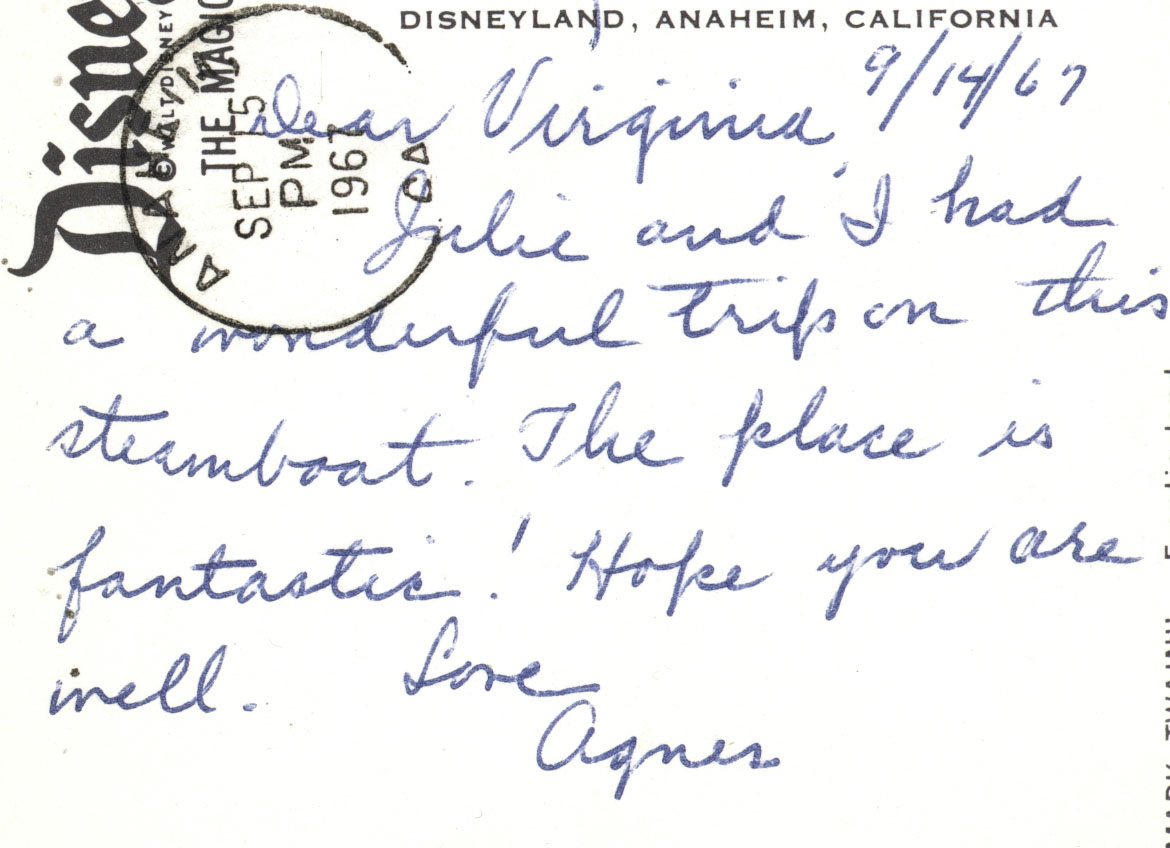 DISNEYLAND, ANAHEIM, CALIFORNIA
9/14/67
Dear Virginia
Julie and I had
a wonderful trip on this
steamboat. The place is
fantastic! Hope you are
well. Love
Agnes
Disne
WALT DISNEY
THE MAGIC
SEP 15
PM
1967
CA
MARK TWAIN